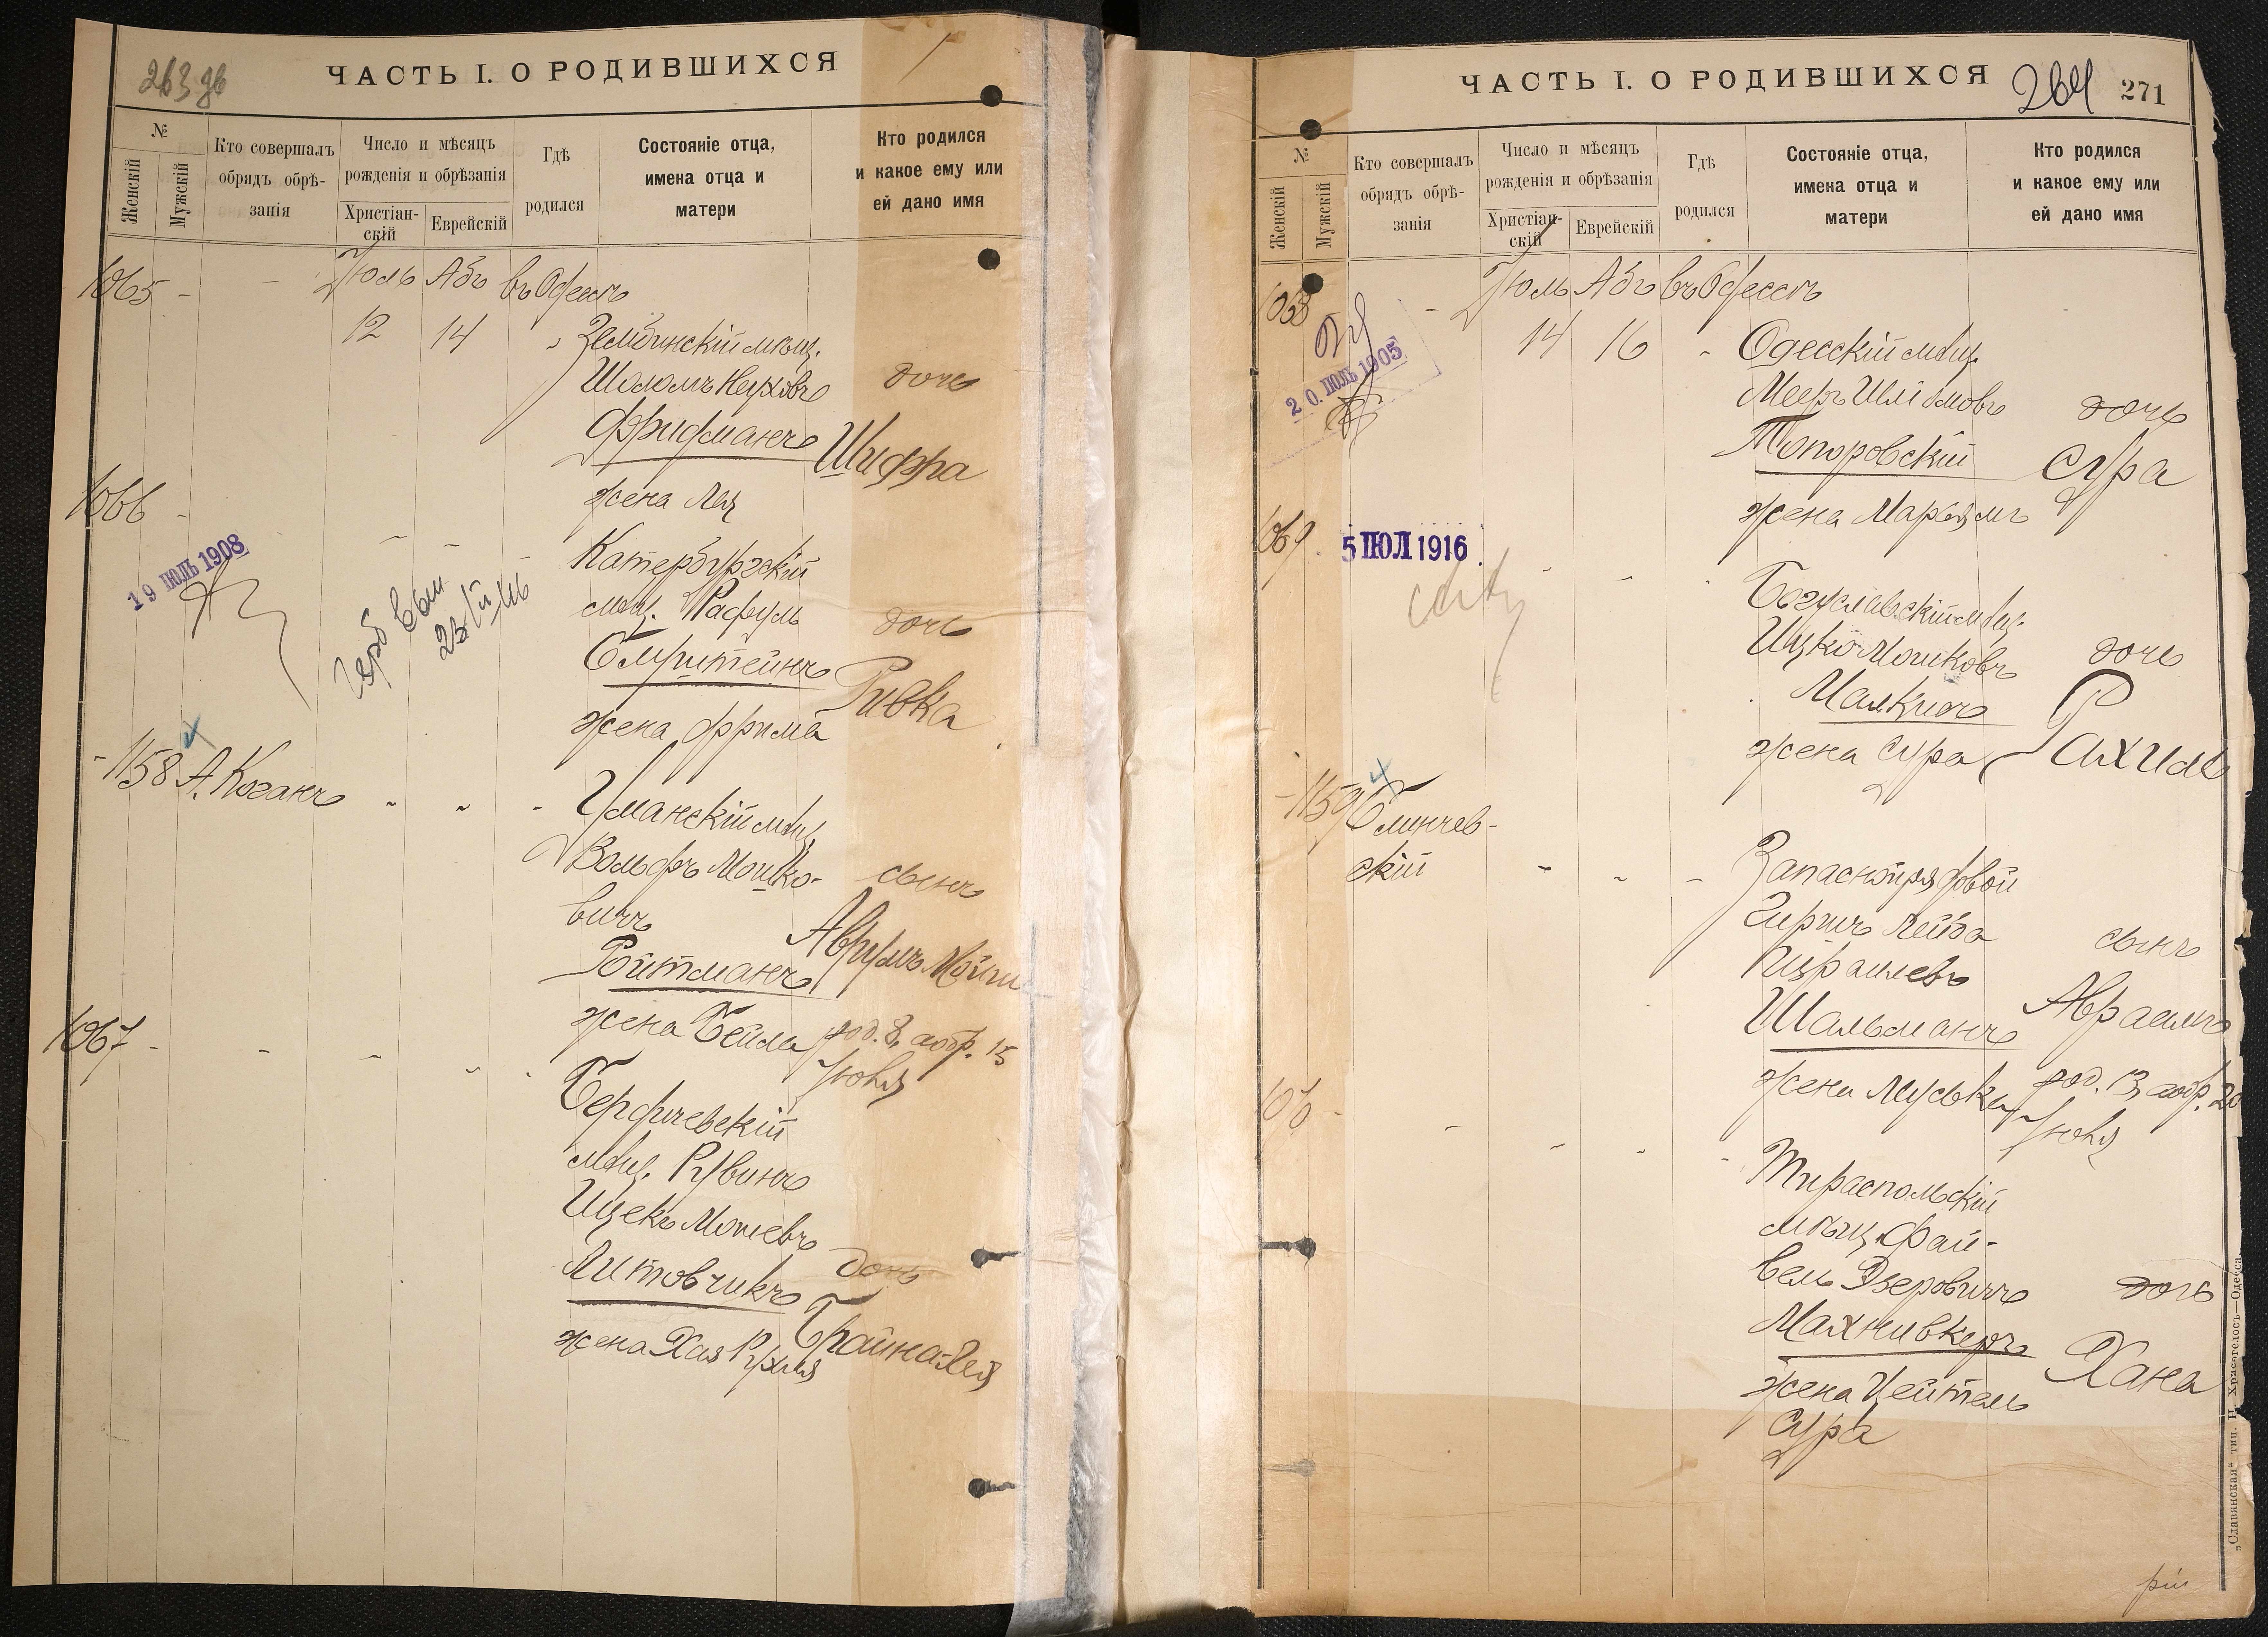 263 об
ЧАСТЬ I. О РОДИВШИХСЯ
№
Женскій
Мужскій
Кто совершалъ
обрядъ обрѣ-
занія
Число и мѣсяцъ
рожденія и обрѣзанія
Христіан-
скій
Еврейскій
Гдѣ
родился
Состояніе отца,
имена отца и
матери
Кто родился
и какое ему или
ей дано имя
1065 - - Іюль Абъ въ Одессѣ
12 14 Зембинскій мѣщ.
Шоломъ Нуховъ дочь
Фридманъ Шифра
жена Лея
1066 -
19 ІЮЛЬ 1908
Катербургскій
мѣщ. Рафуль дочь
Бмрштейнъ Ривка
жена Фрима
- 1158 А. Коганъ Уманскій мѣщ.
Вольфъ Мошко- сынъ
вичъ
Ройтманъ Аврумъ Мойше
жена Бейла род. 8, аобр. 15
Іюля
1067 - - - - -
Бердичевскій
мѣщ. Рувинъ
Ицекъ Мошевъ дочь
Литовчикъ Брайна-Лея
жена Хая Рухля
ЧАСТЬ I. О РОДИВШИХСЯ
264 271
№
Женскій
Мужскій
Кто совершалъ
обрядъ обрѣ-
занія
Число и мѣсяцъ
рожденія и обрѣзанія
Христіан-
скій
Еврейскій
Гдѣ
родился
Состояніе отца,
имена отца и
матери
Кто родился
и какое ему или
ей дано имя
1068 - Іюль Абъ въ Одессѣ
20 ІЮЛЬ 1905
14 16 Одесскій мѣщ.
Мееръ Шлiомовъ дочь
Топоровскій Сура
жена Марьямъ
1069 5 ІЮЛ 1916
Богуславскій мѣщ.
Ицко-Мошковъ дочь
Малкинъ Рахиль
жена Сура
- 1159 Блинчев-
скій - - - Запасной рядовой
Гиршъ Лейба сынъ
Израилевъ
Шальманъ Авраамъ
жена Муська род. 13, аобр. 20
Іюля
1070 - - - - -
Тираспольскій
мѣщ. Фай-
вель Эзеровичъ дочь
Махнивкеръ Хана
жена Цейтель
Сура
„Славянская“ тип. Н. Хрисогелосъ—Одесса.